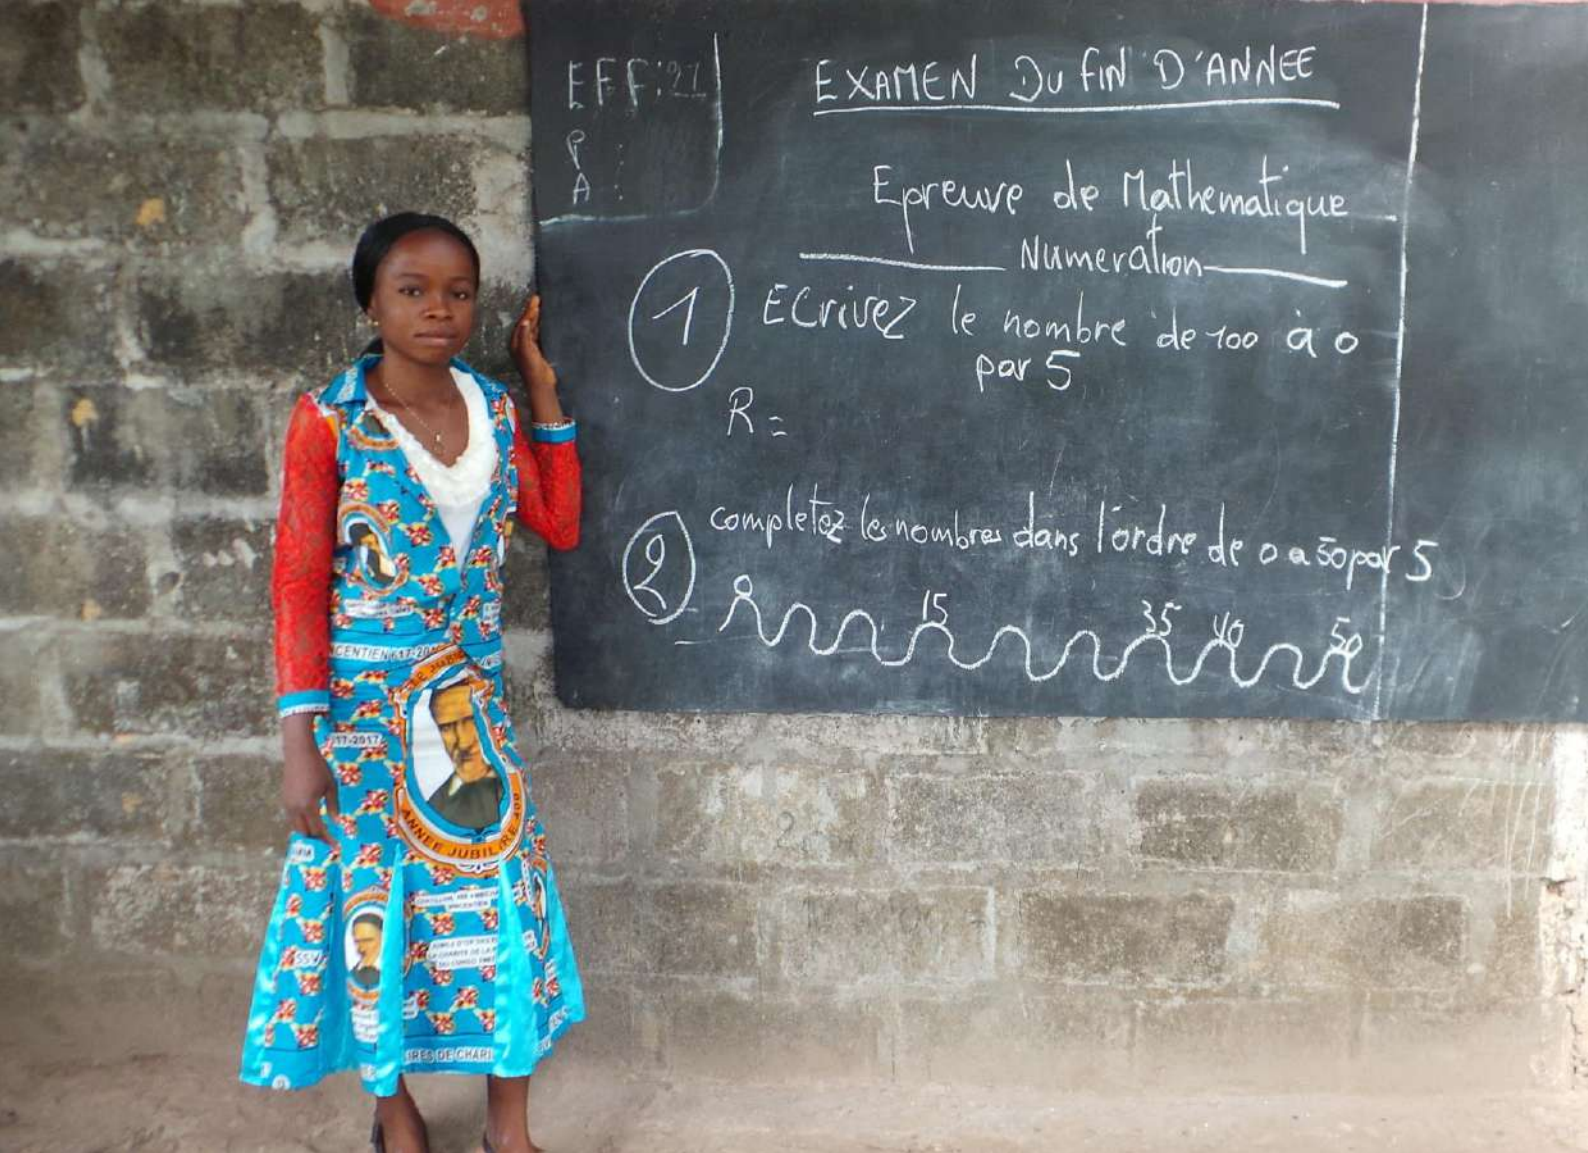 EFF:21
P :
A :
EXAMEN DU FIN D'ANNEE
Epreuve de Mathematique
Numeration
1 Ecrivez le nombre de 100 à 0
par 5
R =
2 completez les nombres dans l'ordre de 0 a 50 par 5
0 15 35 40 50
CENTIEN 617-20
17-2017
ANNEE JUBIL RE 400
SSV
IRES DE CHARI